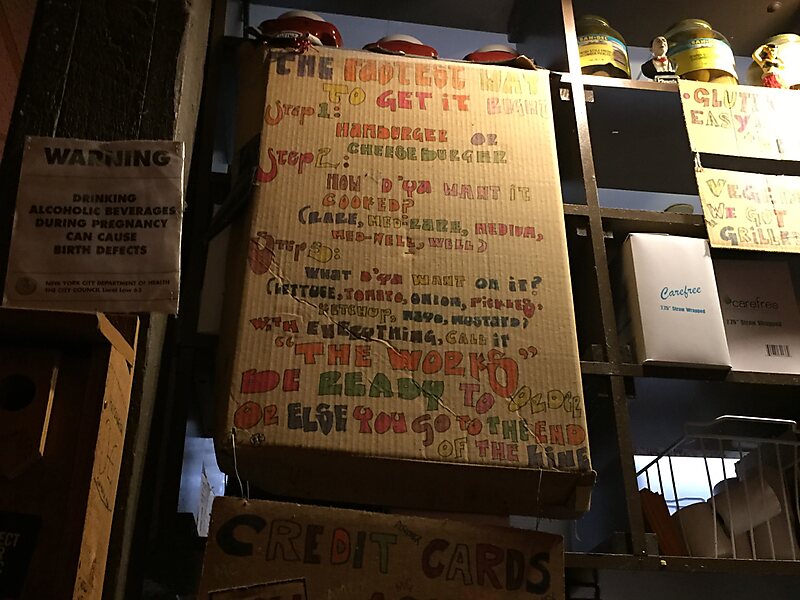 WARNING
DRINKING
ALCOHOLIC BEVERAGES
DURING PREGNANCY
CAN CAUSE
BIRTH DEFECTS
NEW YORK CITY DEPARTMENT OF HEALTH
THE CITY COUNCIL Local Law 63
THE FASTEST WAY
TO GET iT RIGHT
Step 1:
HAMBURGER OR
CHEESEBURGER
Step 2:
HOW D'YA WANT iT
COOKED?
(RARE, MED-RARE, MEDIUM,
MED-WELL, WELL)
Step 3:
WHAT D'YA WANT ON iT?
(LETTUCE, TOMATO, ONION, PICKLES,
KETCHUP, MAYO, MUSTARD)
WITH EVERYTHING, CALL iT
"THE WORKS"
BE READY TO ORDER
OR ELSE YOU GO TO THE END
OF THE LINE
CREDIT CARDS
EASY
WE GOT
Carefree
7.75" Straw Wrapped
carefree
7.75" Straw Wrapped